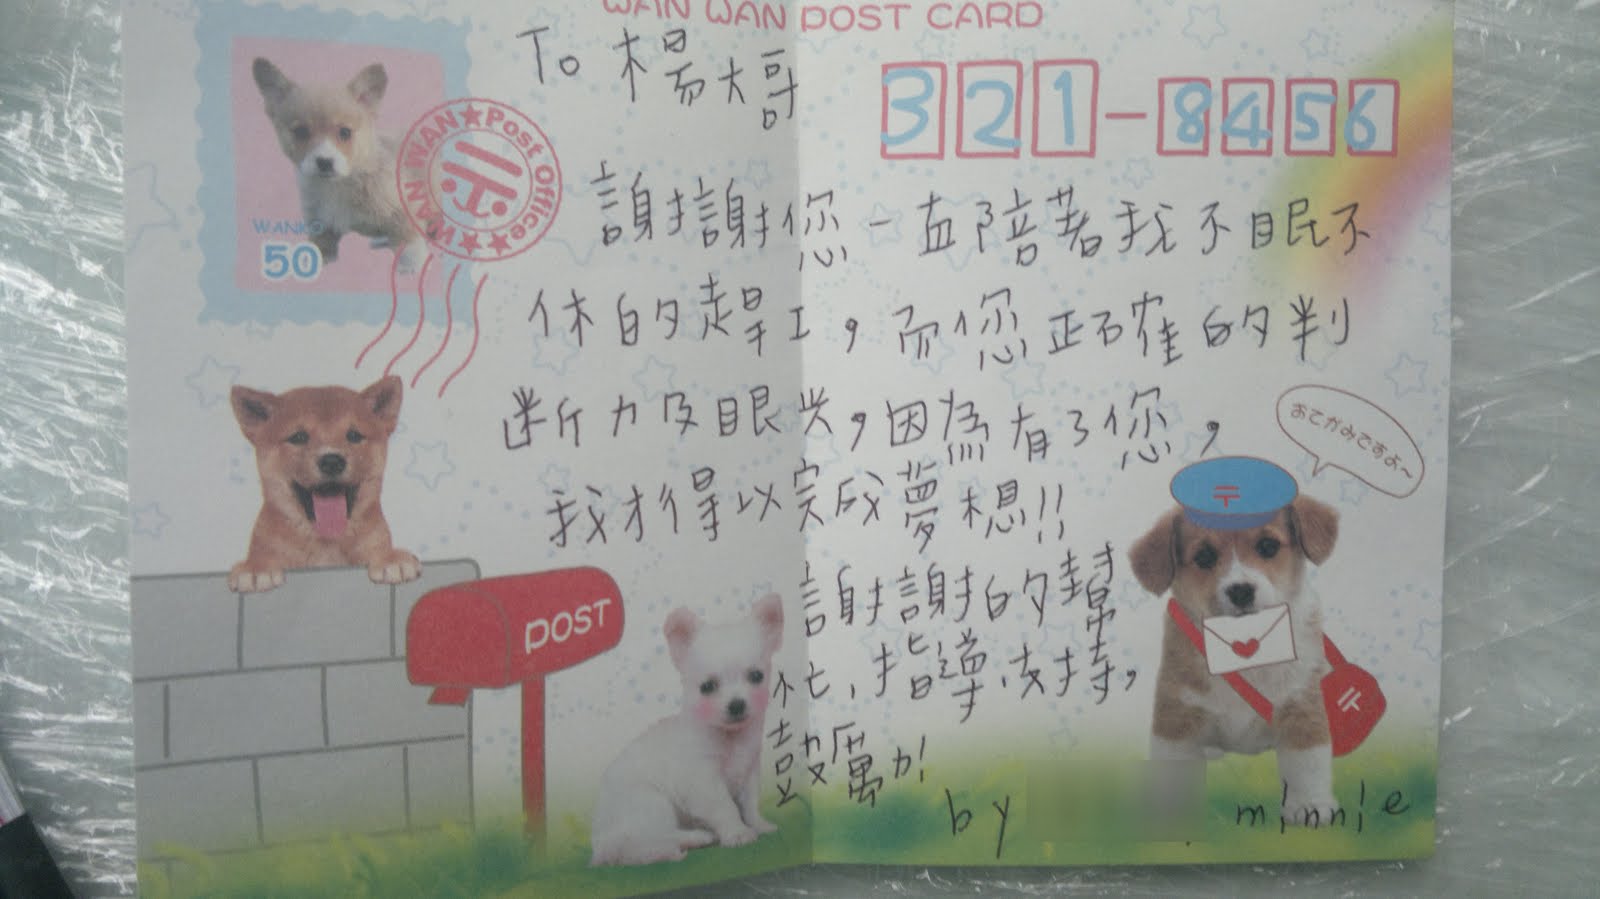 WAN WAN POST CARD
To 楊大哥
321-8456
WAN WAN★Post Office★★
WANKO
50
謝謝您一直陪著我不眠不
休的趕工，而您正確的判
斷力及眼光，因為有了您，
我才得以完成夢想!!
おてがみですよ～
〒
謝謝的幫
忙、指導、支持，
鼓厲力!
POST
by minnie